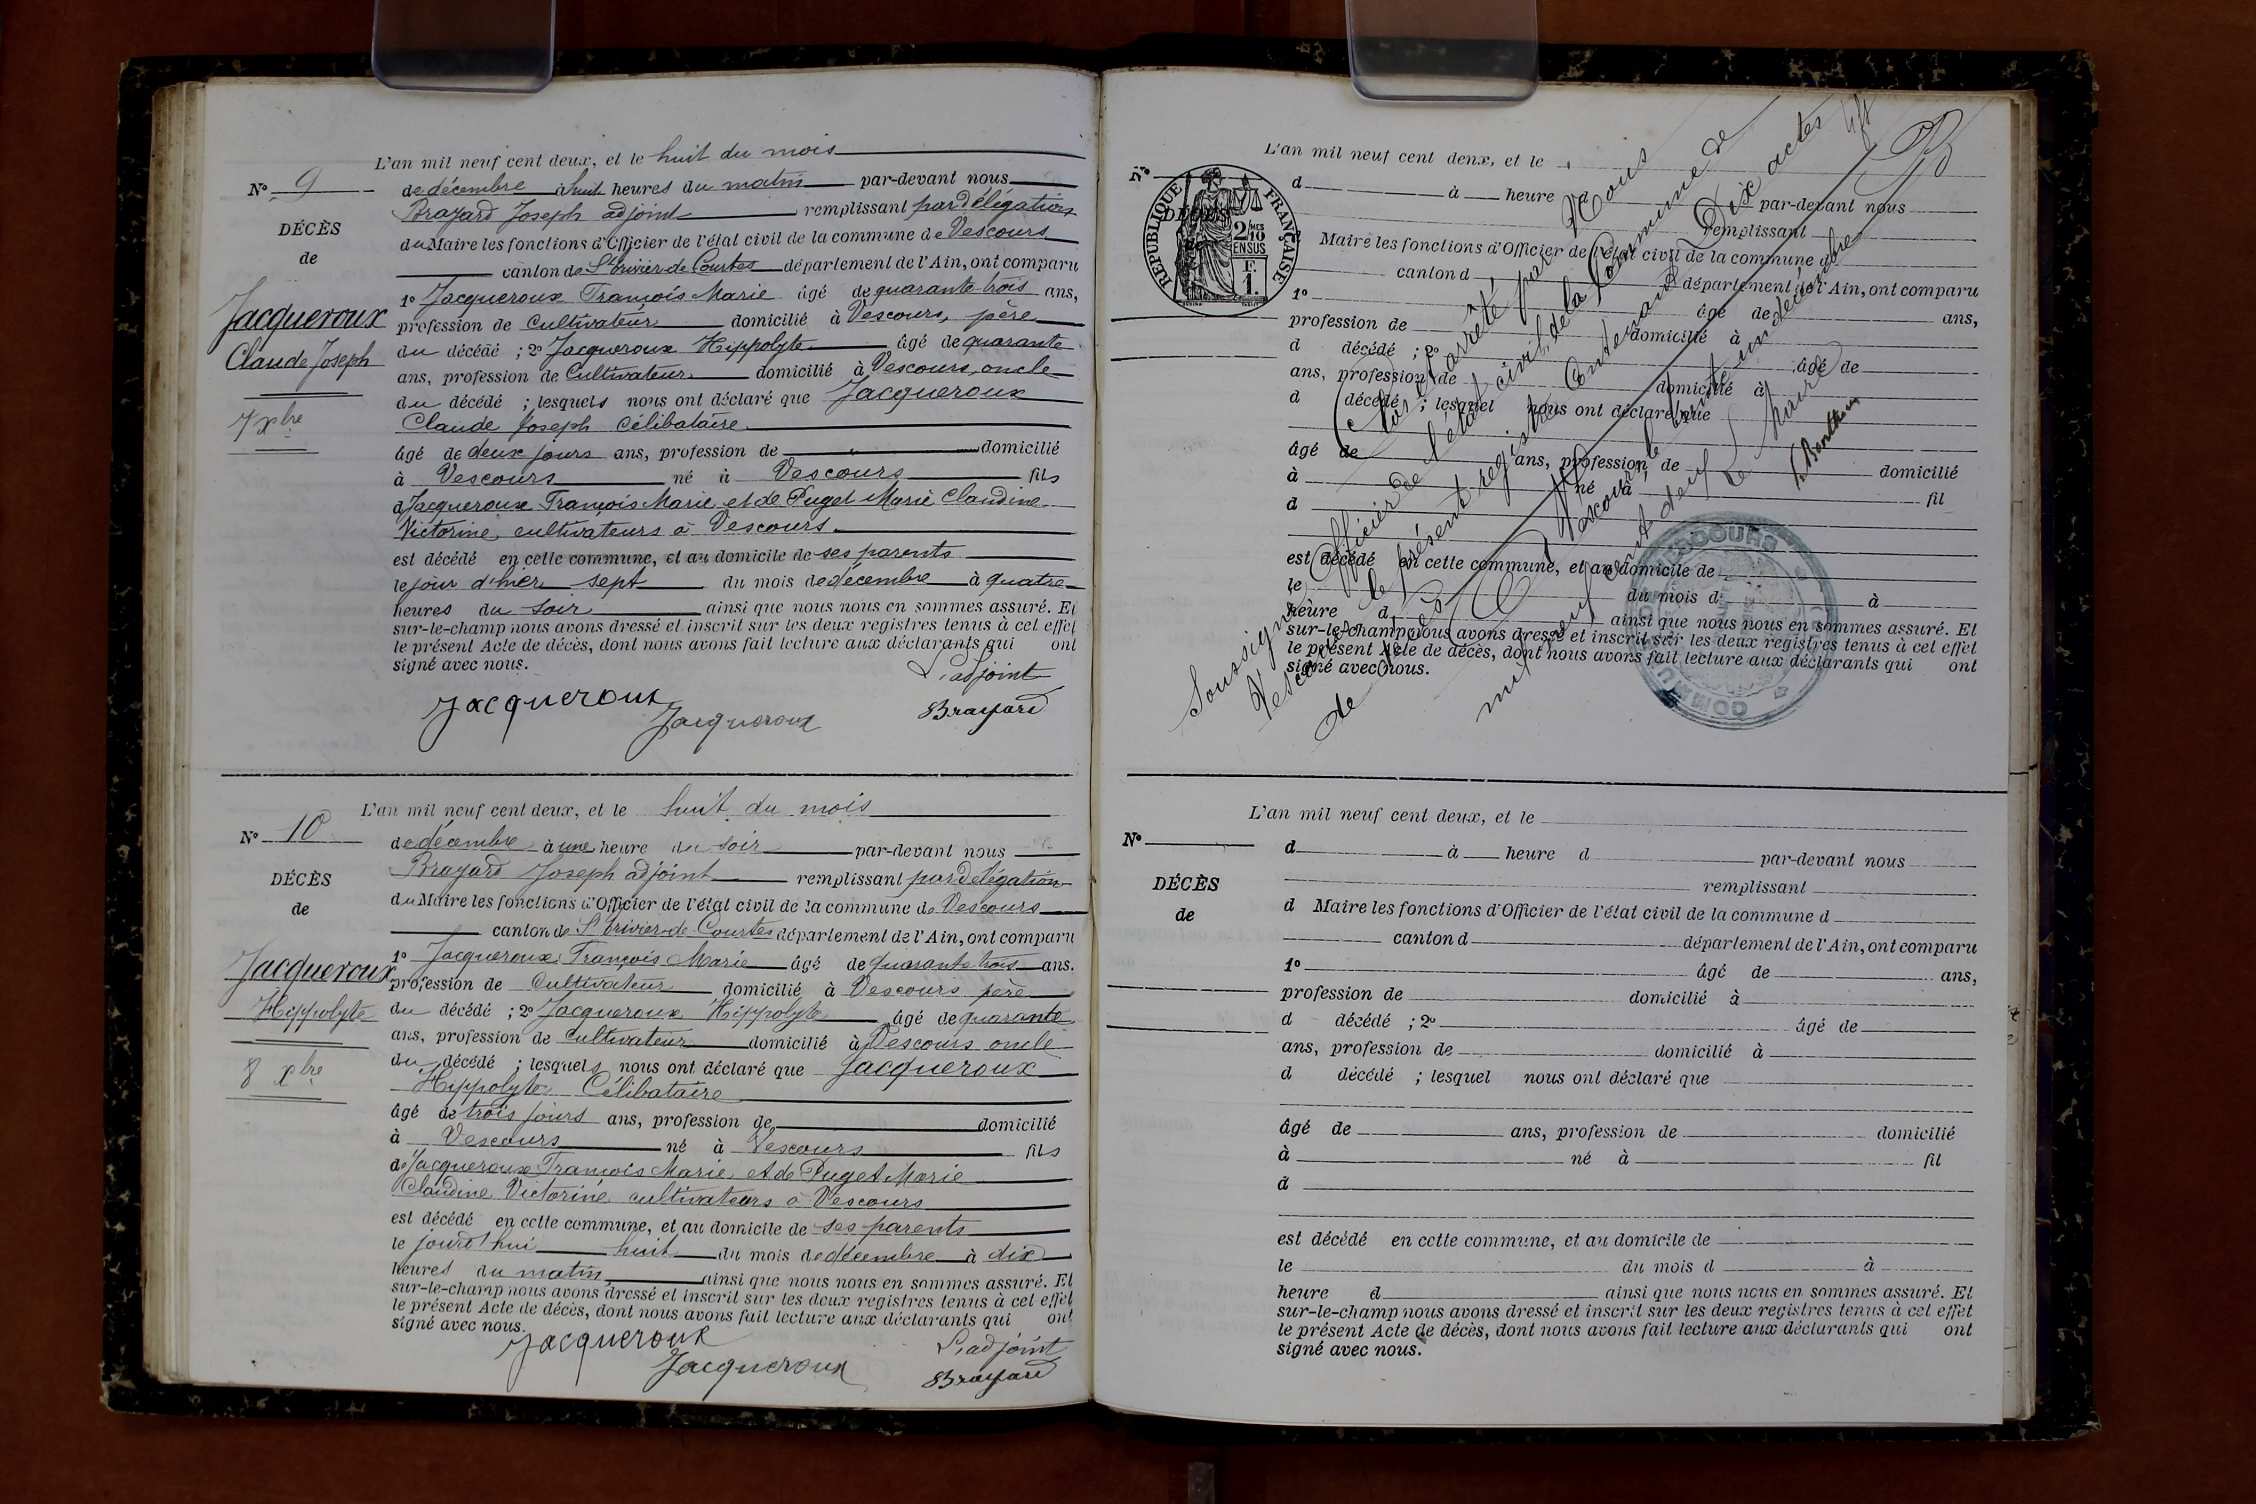 L'an mil neuf cent deux, et le huit du mois
N° 9
de décembre à huit heures du matin par-devant nous
Brayard Joseph adjoint remplissant par délégation
DÉCÈS
du Maire les fonctions d'Officier de l'état civil de la commune de Vescours
de
canton de St Trivier-de-Courtes département de l'Ain, ont comparu
1° Jacqueroux François Marie âgé de quarante-trois ans,
Jacqueroux
profession de Cultivateur domicilié à Vescours, père
Claude Joseph
du décédé ; 2° Jacqueroux Hippolyte âgé de quarante
ans, profession de Cultivateur domicilié à Vescours, oncle
du décédé ; lesquels nous ont déclaré que Jacqueroux
7 xbre
Claude Joseph Célibataire
âgé de deux jours ans, profession de domicilié
à Vescours né à Vescours fils
d Jacqueroux François Marie et de Puget Marie Claudine
Victorine, cultivateurs à Vescours
est décédé en cette commune, et au domicile de ses parents
le jour d'hier sept du mois de décembre à quatre
heures du soir ainsi que nous nous en sommes assuré. Et
sur-le-champ nous avons dressé et inscrit sur les deux registres tenus à cet effet
le présent Acte de décès, dont nous avons fait lecture aux déclarants qui ont
signé avec nous.
L'adjoint
Jacqueroux
Jacqueroux
Brayard
L'an mil neuf cent deux, et le huit du mois
N° 10
de décembre à une heure du soir par-devant nous
Brayard Joseph adjoint remplissant par délégation
DÉCÈS
du Maire les fonctions d'Officier de l'état civil de la commune de Vescours
de
canton de St Trivier-de-Courtes département de l'Ain, ont comparu
1° Jacqueroux François Marie âgé de quarante trois ans.
Jacqueroux
profession de Cultivateur domicilié à Vescours père
Hippolyte
du décédé ; 2° Jacqueroux Hippolyte âgé de quarante
ans, profession de Cultivateur domicilié à Vescours oncle
du décédé ; lesquels nous ont déclaré que Jacqueroux
8 xbre
Hippolyte Célibataire
âgé de trois jours ans, profession de domicilié
à Vescours né à Vescours fils
de Jacqueroux François Marie et de Puget Marie
Claudine Victorine cultivateurs à Vescours
est décédé en cette commune, et au domicile de ses parents
le jourd'hui huit du mois de décembre à dix
heures du matin ainsi que nous nous en sommes assuré. Et
sur-le-champ nous avons dressé et inscrit sur les deux registres tenus à cet effet
le présent Acte de décès, dont nous avons fait lecture aux déclarants qui ont
signé avec nous.
Jacqueroux
Jacqueroux
L'adjoint
Brayard
L'an mil neuf cent deux, et le
N°
d à heure d par-devant nous
RÉPUBLIQUE FRANÇAISE
2/10 MES
EN SUS
F.
1.
DÉCÈS
remplissant
Maire les fonctions d'Officier de l'état civil de la commune d
canton d département de l'Ain, ont comparu
1° âgé de ans,
profession de domicilié à
d décédé ; 2° âgé de
ans, profession de domicilié à
d décédé ; lesquel nous ont déclaré que
âgé de ans, profession de domicilié
à né à fil
d
est décédé en cette commune, et au domicile de
le du mois d à
heure d ainsi que nous nous en sommes assuré. Et
sur-le-champ nous avons dressé et inscrit sur les deux registres tenus à cet effet
le présent Acte de décès, dont nous avons fait lecture aux déclarants qui ont
signé avec nous.
Clos et arrêté par Nous
Soussigné Officier de l'état civil de la Commune de
Vescours le présent registre Contenant Dix actes
de décès
A Vescours le trente un décembre
mil neuf cent deux
Le Maire
Berthoux
L'an mil neuf cent deux, et le
N°
d à heure d par-devant nous
remplissant
DÉCÈS
d Maire les fonctions d'Officier de l'état civil de la commune d
de
canton d département de l'Ain, ont comparu
1° âgé de ans,
profession de domicilié à
d décédé ; 2° âgé de
ans, profession de domicilié à
d décédé ; lesquel nous ont déclaré que
âgé de ans, profession de domicilié
à né à fil
d
est décédé en cette commune, et au domicile de
le du mois d à
heure d ainsi que nous nous en sommes assuré. Et
sur-le-champ nous avons dressé et inscrit sur les deux registres tenus à cet effet
le présent Acte de décès, dont nous avons fait lecture aux déclarants qui ont
signé avec nous.